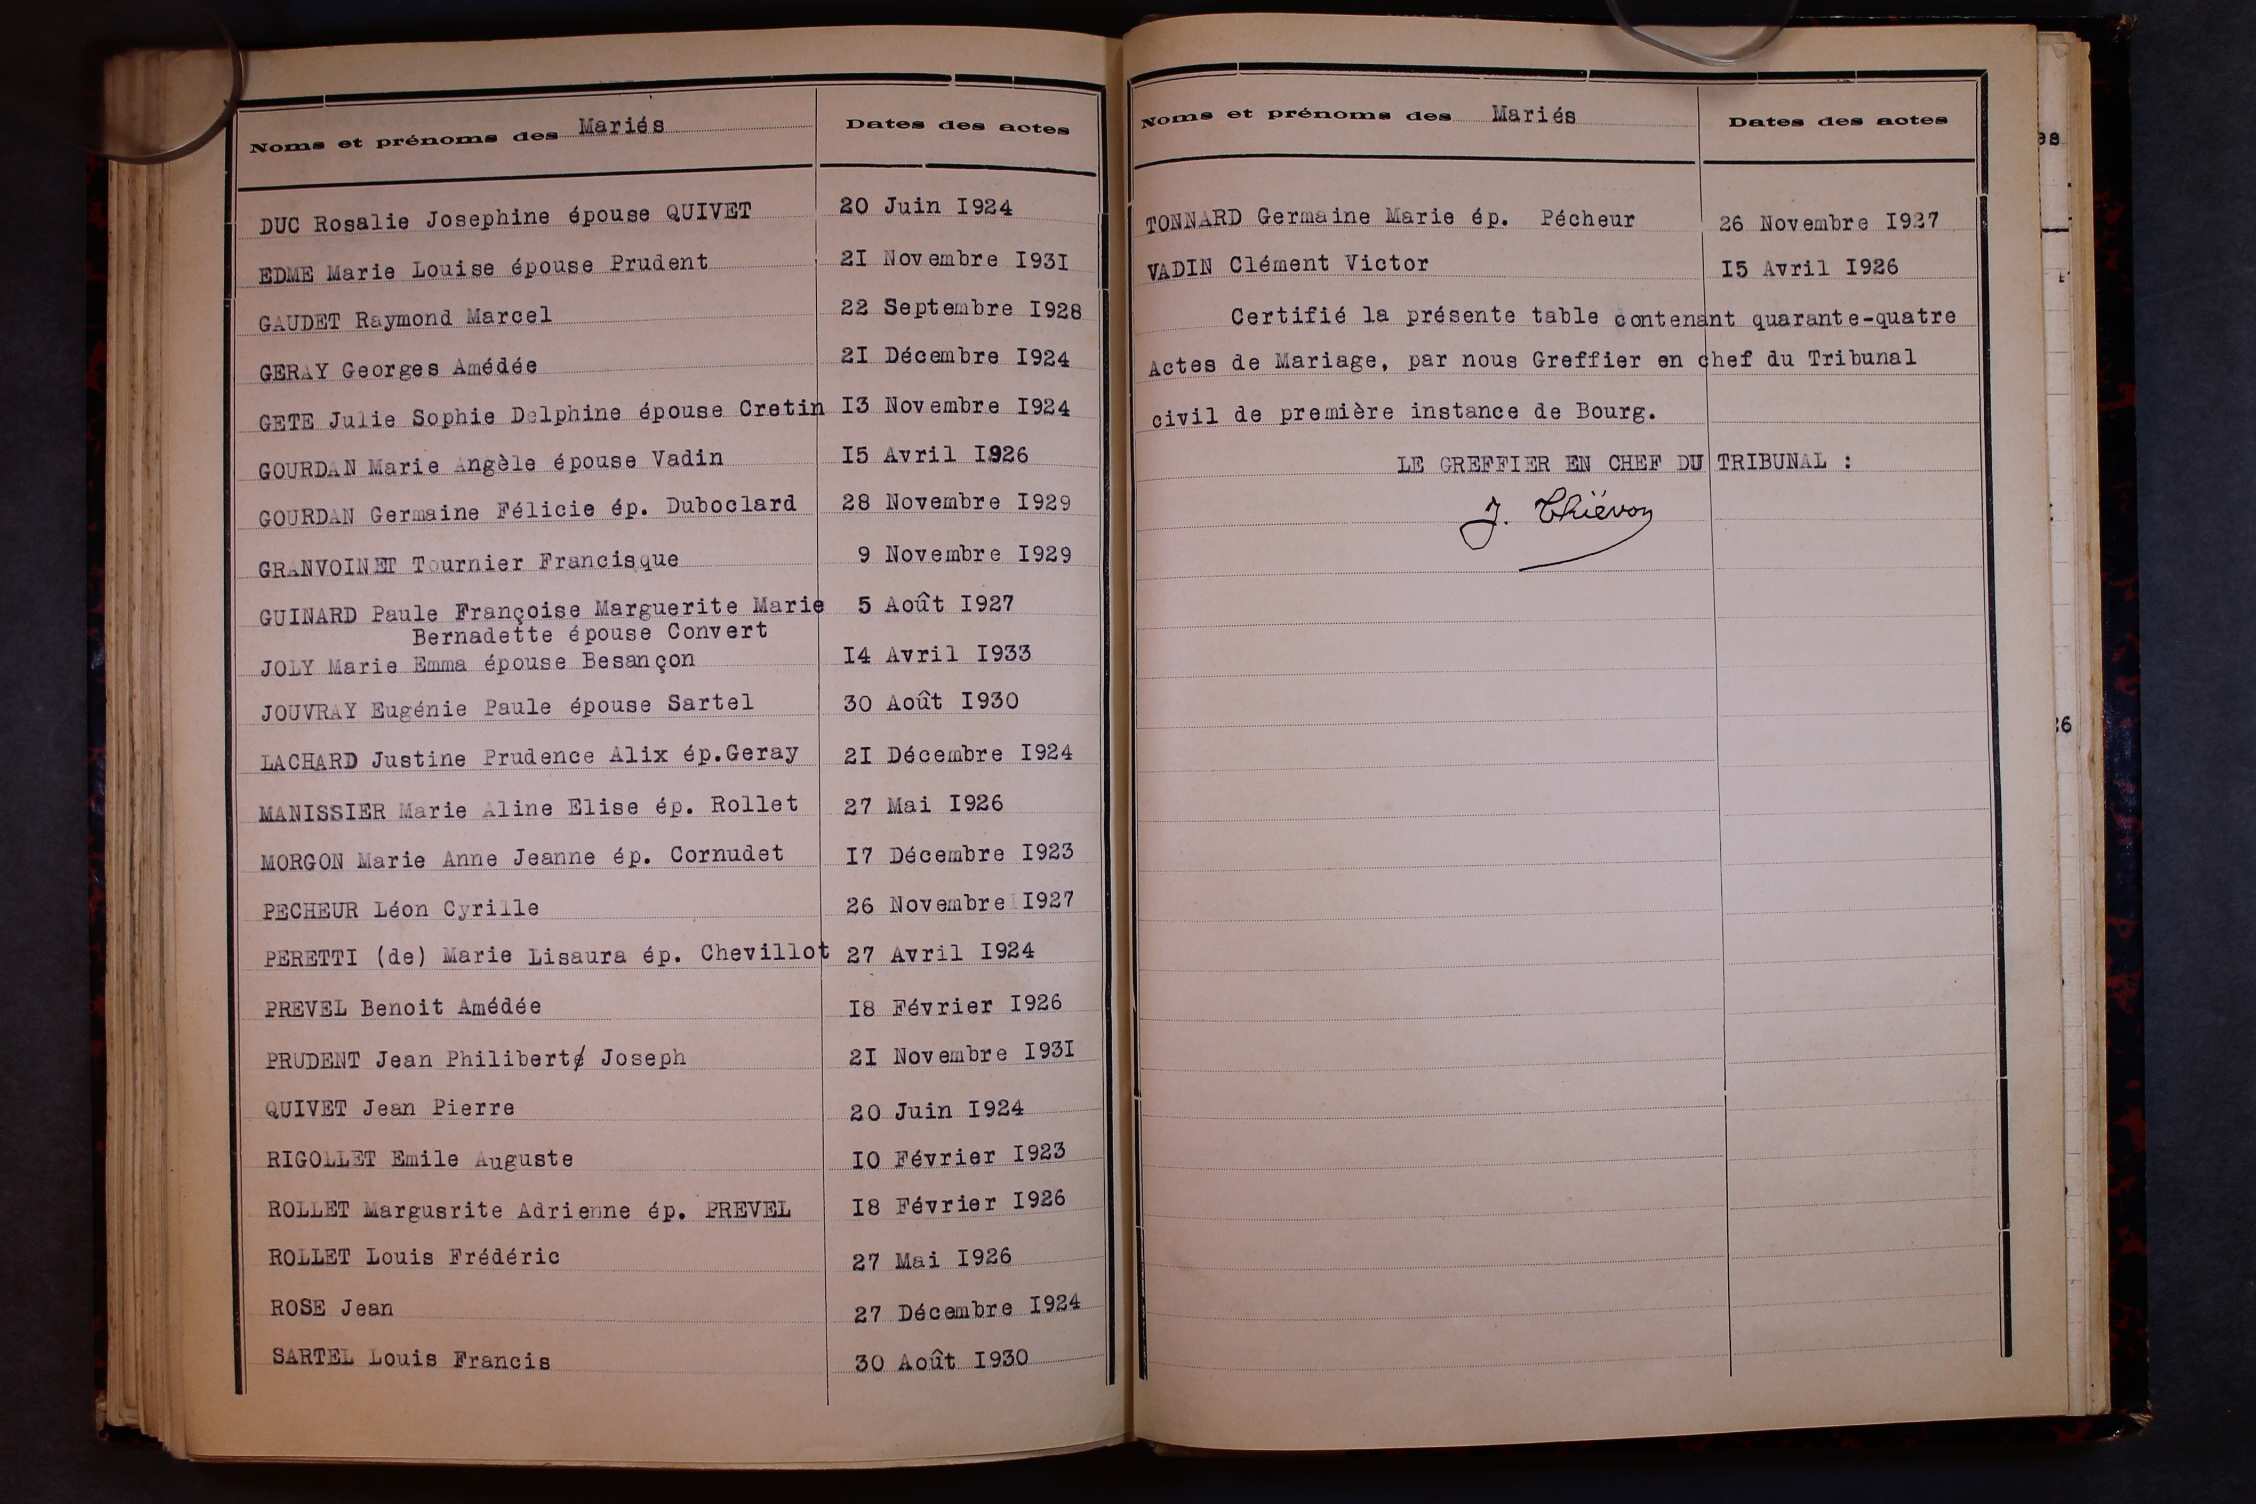 Noms et prénoms des Mariés Dates des actes
DUC Rosalie Josephine épouse QUIVET 20 Juin I924
EDME Marie Louise épouse Prudent 2I Novembre I93I
GAUDET Raymond Marcel 22 Septembre I928
GERAY Georges Amédée 2I Décembre I924
GETE Julie Sophie Delphine épouse Cretin I3 Novembre I924
GOURDAN Marie Angèle épouse Vadin I5 Avril I926
GOURDAN Germaine Félicie ép. Duboclard 28 Novembre I929
GRANVOINET Tournier Francisque 9 Novembre I929
GUINARD Paule Françoise Marguerite Marie 5 Août I927
Bernadette épouse Convert
JOLY Marie Emma épouse Besançon I4 Avril I933
JOUVRAY Eugénie Paule épouse Sartel 30 Août I930
LACHARD Justine Prudence Alix ép.Geray 2I Décembre I924
MANISSIER Marie Aline Elise ép. Rollet 27 Mai I926
MORGON Marie Anne Jeanne ép. Cornudet I7 Décembre I923
PECHEUR Léon Cyrille 26 Novembre I927
PERETTI (de) Marie Lisaura ép. Chevillot 27 Avril I924
PREVEL Benoit Amédée I8 Février I926
PRUDENT Jean Philibert Joseph 2I Novembre I93I
QUIVET Jean Pierre 20 Juin I924
RIGOLLET Emile Auguste IO Février I923
ROLLET Margusrite Adrienne ép. PREVEL I8 Février I926
ROLLET Louis Frédéric 27 Mai I926
ROSE Jean 27 Décembre I924
SARTEL Louis Francis 30 Août I930
Noms et prénoms des Mariés Dates des actes
TONNARD Germaine Marie ép. Pécheur 26 Novembre I927
VADIN Clément Victor I5 Avril I926
Certifié la présente table contenant quarante-quatre
Actes de Mariage, par nous Greffier en chef du Tribunal
civil de première instance de Bourg.
LE GREFFIER EN CHEF DU TRIBUNAL :
J. Thiévon